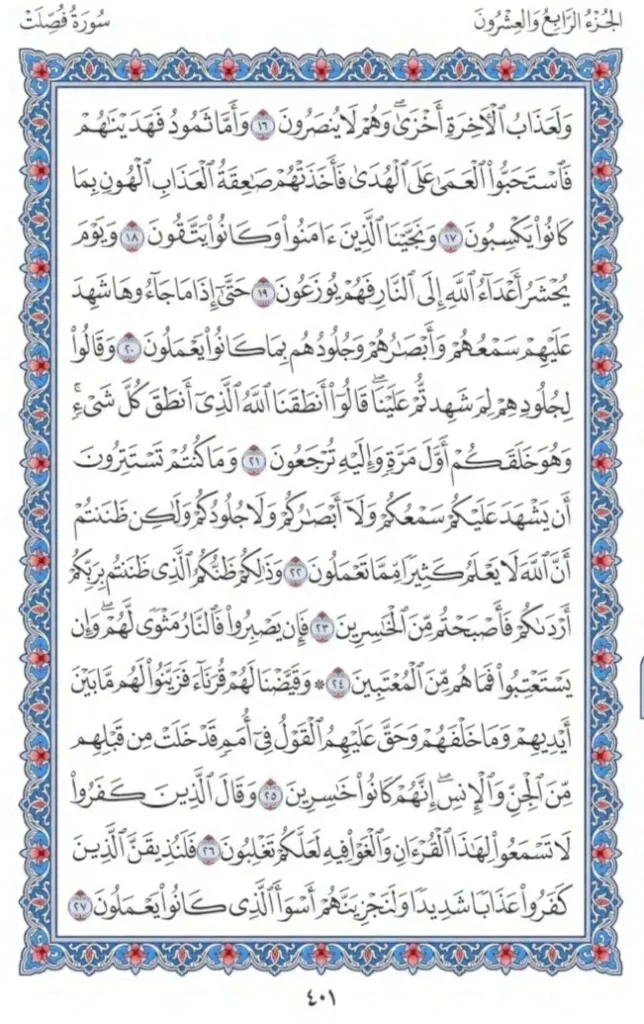 الجُزْءُ الرَّابِعُ وَالعِشْرُونَ سُورَةُ فُصِّلَتْ
وَلَعَذَابُ ٱلْأَخِرَةِ أَخْزَىٰۖ وَهُمْ لَا يُنصَرُونَ ١٦ وَأَمَّا ثَمُودُ فَهَدَيْنَٰهُمْ
فَٱسْتَحَبُّوا۟ ٱلْعَمَىٰ عَلَى ٱلْهُدَىٰ فَأَخَذَتْهُمْ صَٰعِقَةُ ٱلْعَذَابِ ٱلْهُونِ بِمَا
كَانُوا۟ يَكْسِبُونَ ١٧ وَنَجَّيْنَا ٱلَّذِينَ ءَامَنُوا۟ وَكَانُوا۟ يَتَّقُونَ ١٨ وَيَوْمَ
يُحْشَرُ أَعْدَآءُ ٱللَّهِ إِلَى ٱلنَّارِ فَهُمْ يُوزَعُونَ ١٩ حَتَّىٰٓ إِذَا مَا جَآءُوهَا شَهِدَ
عَلَيْهِمْ سَمْعُهُمْ وَأَبْصَٰرُهُمْ وَجُلُودُهُم بِمَا كَانُوا۟ يَعْمَلُونَ ٢٠ وَقَالُوا۟
لِجُلُودِهِمْ لِمَ شَهِدتُّمْ عَلَيْنَاۖ قَالُوٓا۟ أَنطَقَنَا ٱللَّهُ ٱلَّذِىٓ أَنطَقَ كُلَّ شَىْءٍۚ
وَهُوَ خَلَقَكُمْ أَوَّلَ مَرَّةٍ وَإِلَيْهِ تُرْجَعُونَ ٢١ وَمَا كُنتُمْ تَسْتَتِرُونَ
أَن يَشْهَدَ عَلَيْكُمْ سَمْعُكُمْ وَلَآ أَبْصَٰرُكُمْ وَلَا جُلُودُكُمْ وَلَٰكِن ظَنَنتُمْ
أَنَّ ٱللَّهَ لَا يَعْلَمُ كَثِيرًا مِّمَّا تَعْمَلُونَ ٢٢ وَذَٰلِكُمْ ظَنُّكُمُ ٱلَّذِى ظَنَنتُم بِرَبِّكُمْ
أَرْدَىٰكُمْ فَأَصْبَحْتُم مِّنَ ٱلْخَٰسِرِينَ ٢٣ فَإِن يَصْبِرُوا۟ فَٱلنَّارُ مَثْوًى لَّهُمْۖ وَإِن
يَسْتَعْتِبُوا۟ فَمَا هُم مِّنَ ٱلْمُعْتَبِينَ ٢٤ ۞ وَقَيَّضْنَا لَهُمْ قُرَنَآءَ فَزَيَّنُوا۟ لَهُم مَّا بَيْنَ
أَيْدِيهِمْ وَمَا خَلْفَهُمْ وَحَقَّ عَلَيْهِمُ ٱلْقَوْلُ فِىٓ أُمَمٍ قَدْ خَلَتْ مِن قَبْلِهِم
مِّنَ ٱلْجِنِّ وَٱلْإِنسِۖ إِنَّهُمْ كَانُوا۟ خَٰسِرِينَ ٢٥ وَقَالَ ٱلَّذِينَ كَفَرُوا۟
لَا تَسْمَعُوا۟ لِهَٰذَا ٱلْقُرْءَانِ وَٱلْغَوْا۟ فِيهِ لَعَلَّكُمْ تَغْلِبُونَ ٢٦ فَلَنُذِيقَنَّ ٱلَّذِينَ
كَفَرُوا۟ عَذَابًا شَدِيدًا وَلَنَجْزِيَنَّهُمْ أَسْوَأَ ٱلَّذِى كَانُوا۟ يَعْمَلُونَ ٢٧
٤٠١